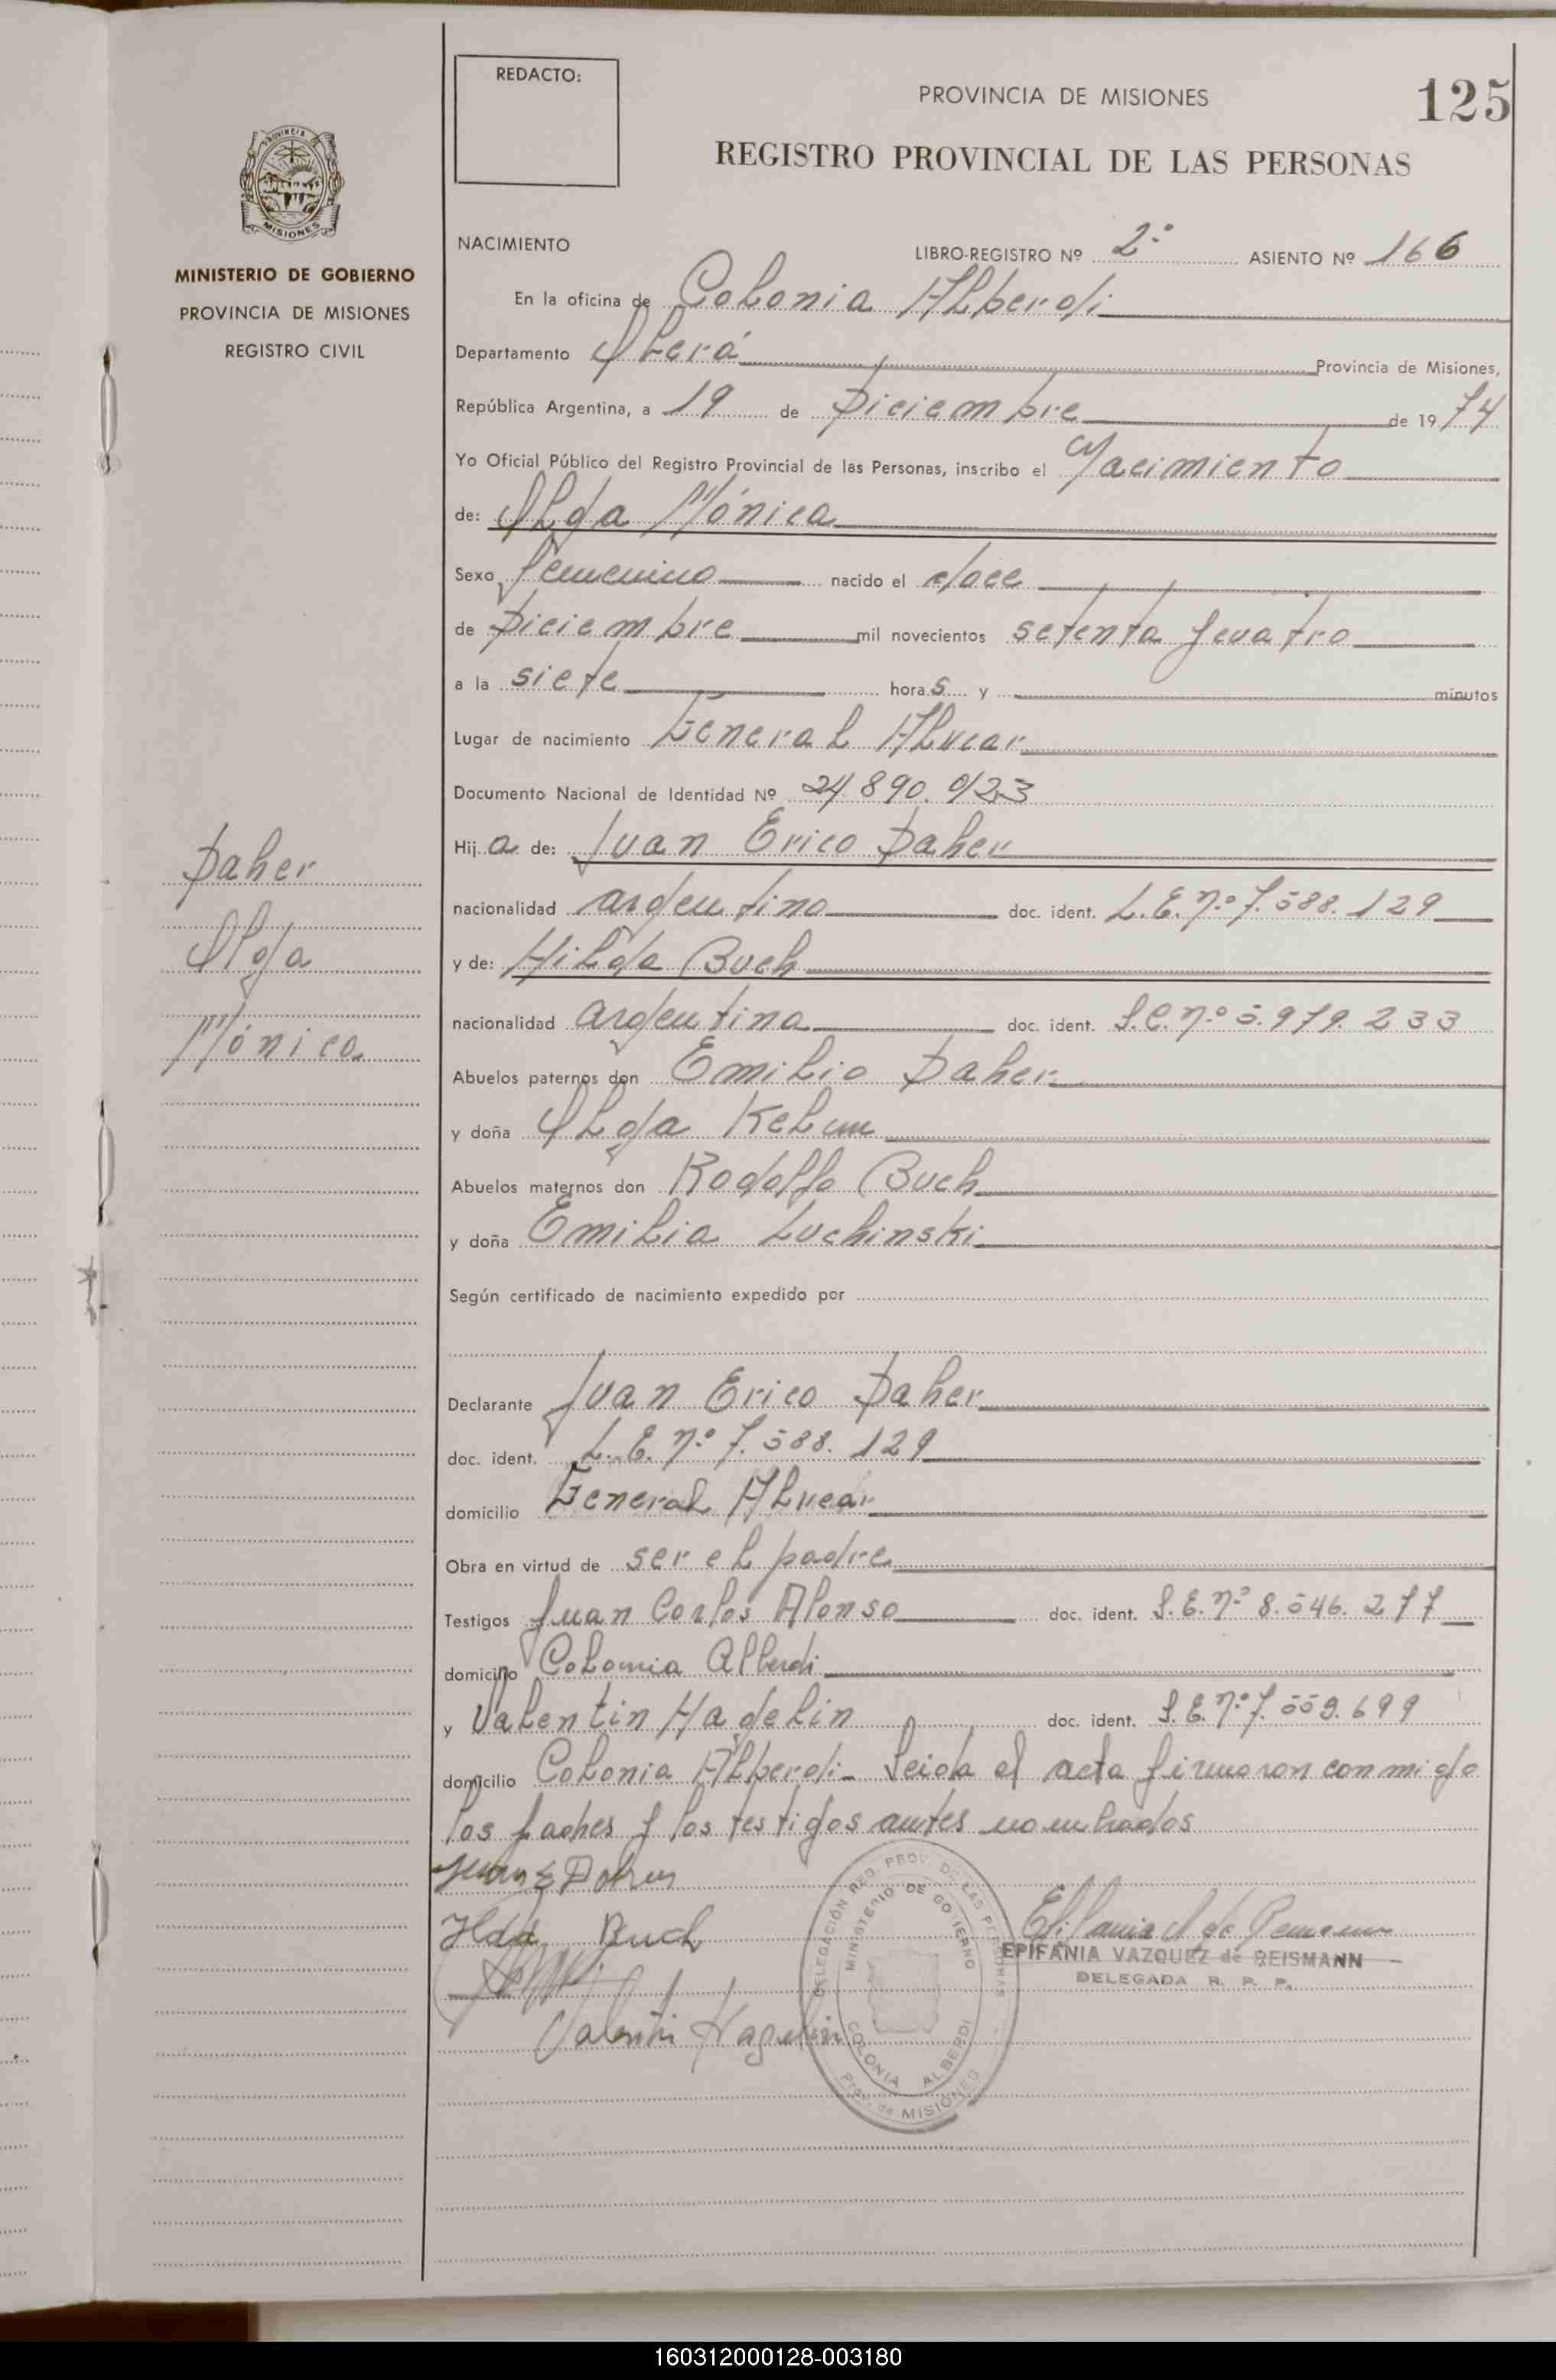 REDACTO:
PROVINCIA DE MISIONES
125
REGISTRO PROVINCIAL DE LAS PERSONAS
PROVINCIA
MISIONES
MINISTERIO DE GOBIERNO
PROVINCIA DE MISIONES
REGISTRO CIVIL
NACIMIENTO LIBRO-REGISTRO Nº 2º ASIENTO Nº 166
En la oficina de Colonia Alberdi
Departamento Oberá Provincia de Misiones,
República Argentina, a 19 de Diciembre de 1974
Yo Oficial Público del Registro Provincial de las Personas, inscribo el Nacimiento
de: Olga Mónica
Sexo Femenino nacido el doce
de Diciembre mil novecientos setenta y cuatro
a la siete horas y minutos
Lugar de nacimiento General Alvear
Documento Nacional de Identidad Nº 24.890.023
Hija de: Juan Erico Daher
nacionalidad argentino doc. ident. L.E. nº 7.588.129
y de: Hilda Buch
nacionalidad argentina doc. ident. L.C. nº 5.979.233
Abuelos paternos don Emilio Daher
y doña Olga
Abuelos maternos don Rodolfo Buch
y doña Emilia Luchinski
Según certificado de nacimiento expedido por
Declarante Juan Erico Daher
doc. ident. L.E. nº 7.588.129
domicilio General Alvear
Obra en virtud de ser el padre
Testigos Juan Carlos Alonso doc. ident. L.E. nº 8.546.277
domicilio Colonia Alberdi
y Valentin Hagelin doc. ident. L.E. nº 7.559.699
domicilio Colonia Alberdi- Leida el acta firmaron conmigo
los padres y los testigos antes nombrados
Daher
Olga
Mónica
Hda Buch
Valentin Hagelin
DELEGACIÓN REG. PROV. DE LAS PERSONAS
MINISTERIO DE GOBIERNO
COLONIA ALBERDI
Prov. de MISIONES
EPIFANIA VAZQUEZ de REISMANN
DELEGADA R. P. P.
160312000128-003180